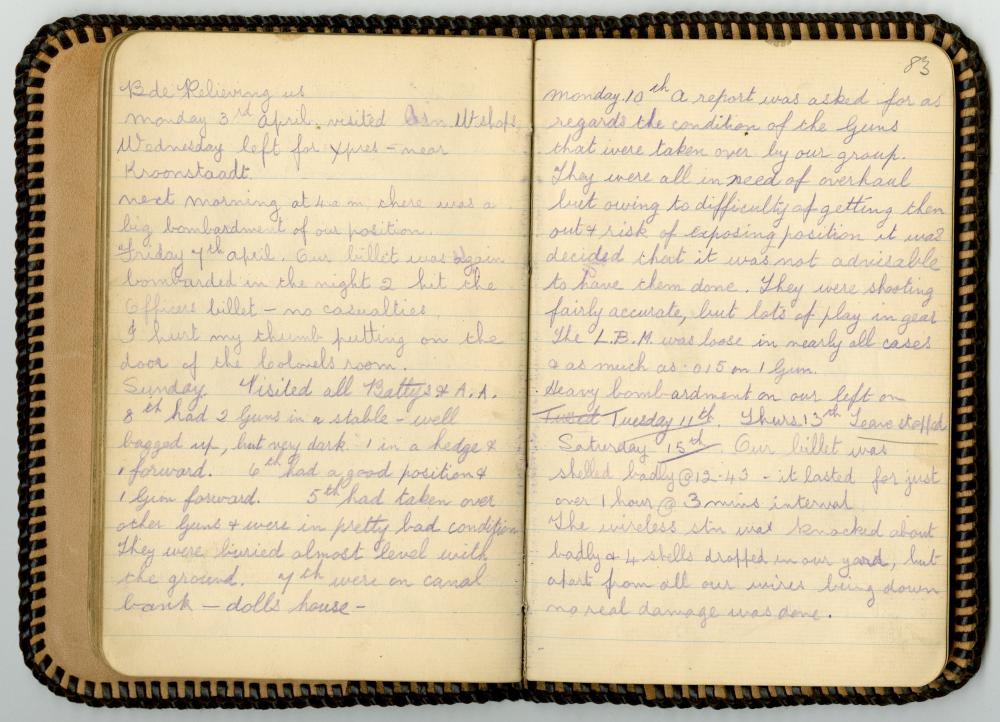 Bde Relieving us
Monday 3rd April, visited Osn. Wshops,
Wednesday left for Ypres - near
Kroonstaadt.
next morning at 4 a m there was a
big bombardment of our position.
Friday 7th April. Our billet was again
bombarded in the night 2 hit the
Officers billet - no casualties.
I hurt my thumb putting on the
door of the Colonels room.
Sunday. Visited all Battys & A.A.
8th had 2 Guns in a stable - well
bagged up, but very dark. 1 in a hedge &
1 forward. 6th had a good position &
1 Gun forward. 5th had taken over
other Guns & were in pretty bad condition
They were buried almost level with
the ground. 7th were on canal
bank - dolls house -
83
Monday. 10th A report was asked for as
regards the condition of the Guns
that were taken over by our group.
They were all in need of overhaul
but owing to difficulty of getting them
out & risk of exposing position it was
decided that it was not advisable
to have them done. They were shooting
fairly accurate, but lots of play in gear
The L.B.M. was loose in nearly all cases
& as much as .015 on 1 Gun.
Heavy bombardment on our left on
Tuesday 11th. Thurs. 13th Leave stopped
Saturday 15th. Our billet was
shelled badly @ 12-43 - it lasted for just
over 1 hour @ 3 mins interval
The wireless stn was knocked about
badly & 4 shells dropped in our yard, but
apart from all our wires being down
no real damage was done.